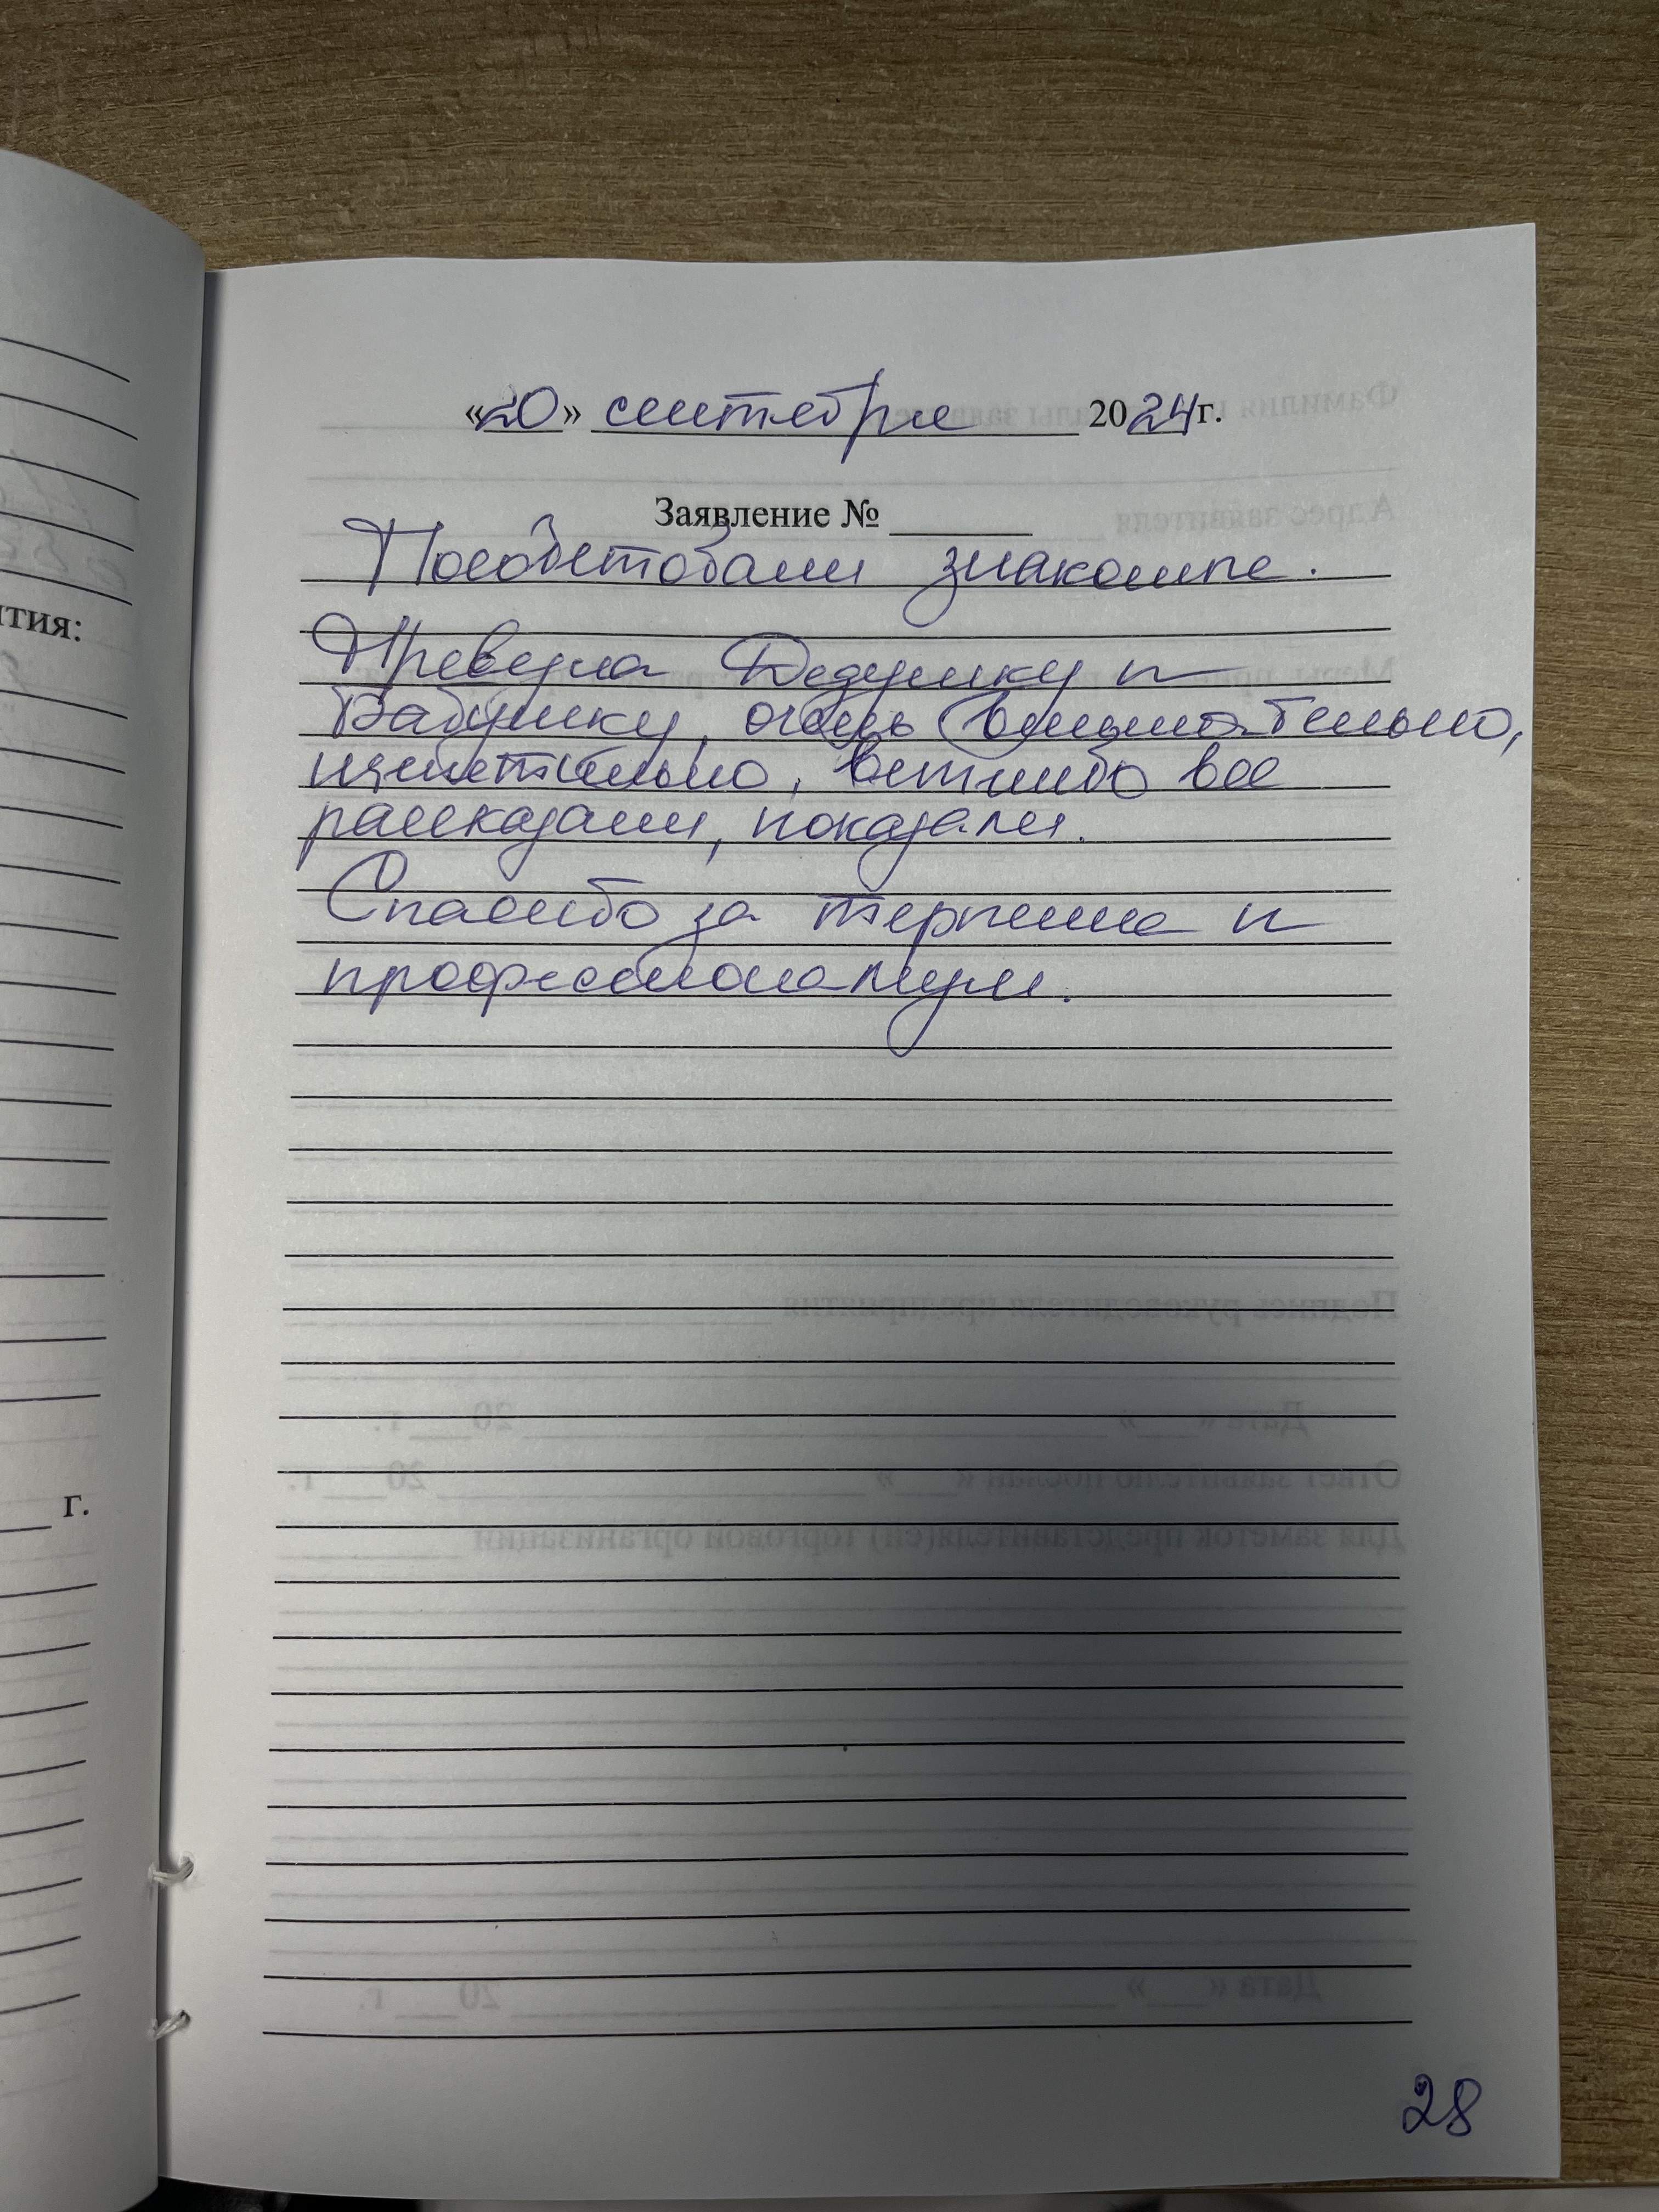 «20» сентября 2024г.
Заявление №
Посоветовали знакомые.
Привезла Дедушку и
Бабушку, очень внимательно,
щепетильно, все
рассказали, показали.
Спасибо за терпение и
профессионализм.
тия:
г.
28